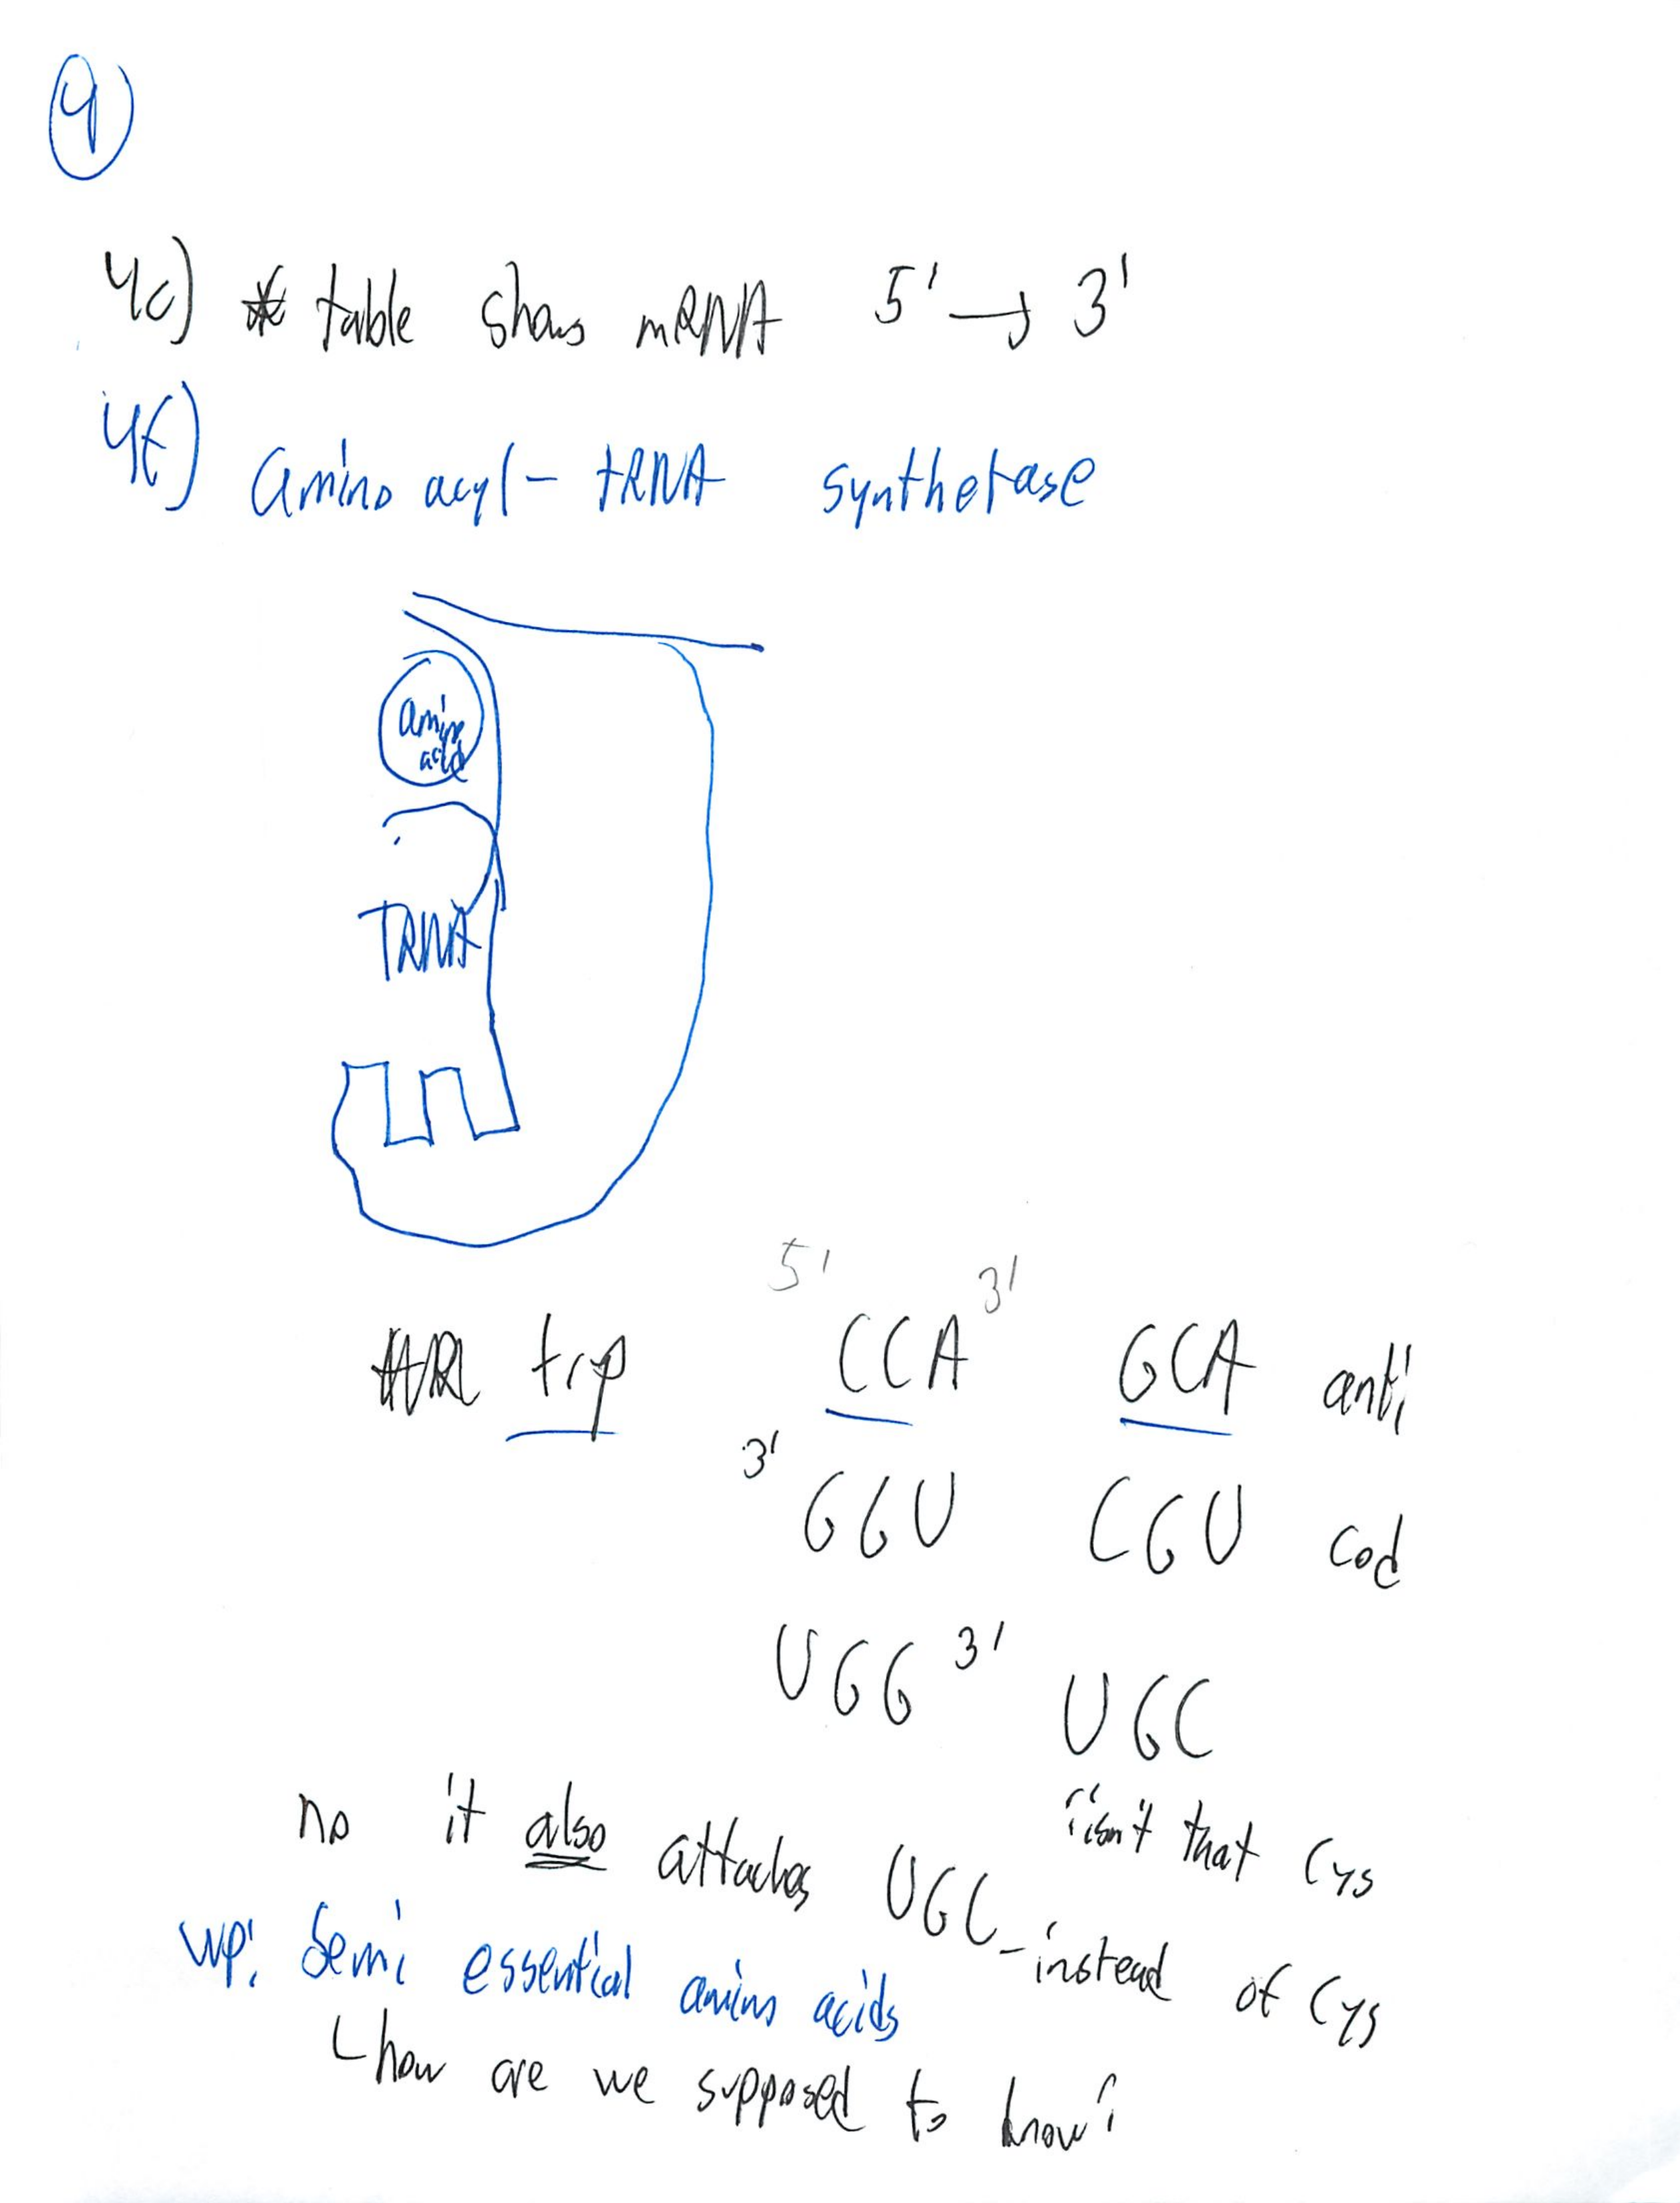 4
4c) * table shows mRNA 5' → 3'
4f) amino acyl - tRNA synthetase
amino
acid
TRNA
5' 3'
trp CCA GCA anti
3'
GGU CGU cod
UGG 3' UGC
isn't that Cys
no it also attaches UGC - instead of Cys
wp: Semi essential amino acids
how are we supposed to know?